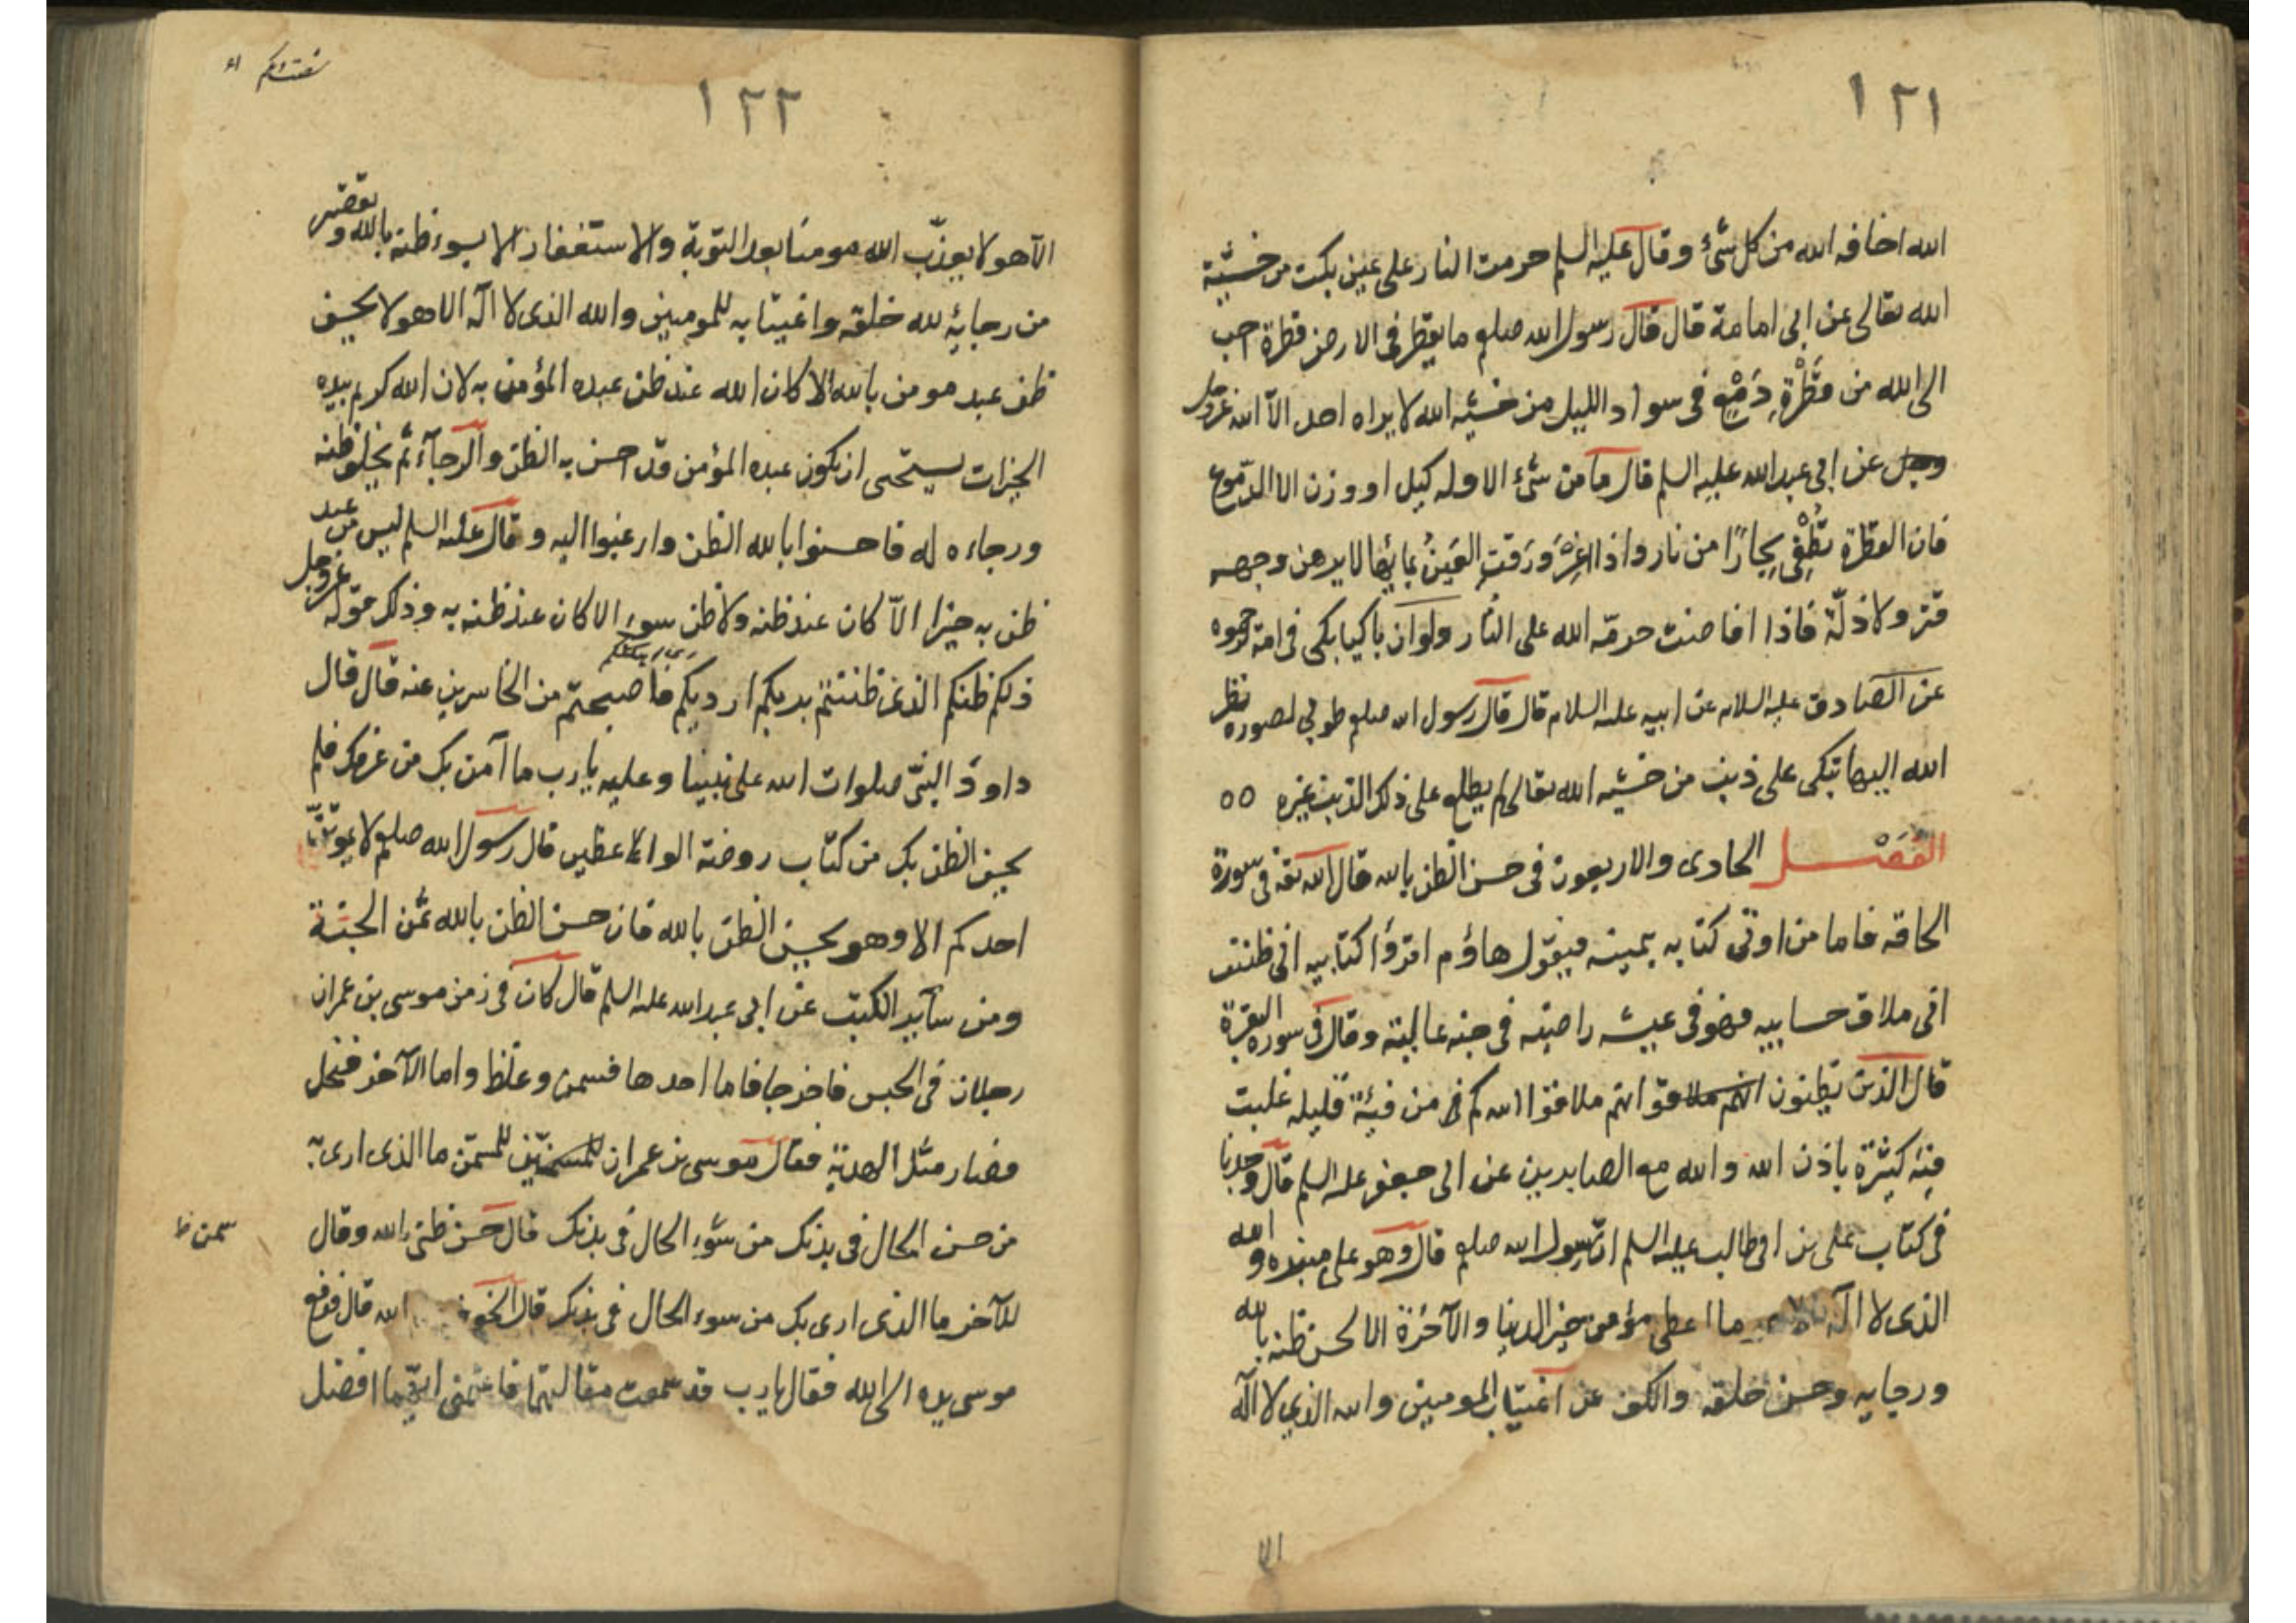 ١٢١
الله اخافه الله من كل شئ وقال عليه السلم حرمت النار على عين بكت من خشية
الله تعالى عن ابى امامة قال قال رسول الله صلعم ما يقطر فى الارض قطرة احب
الى الله من قَطْرةِ دَمْعٍ فى سواد الليل من خشيه الله لا يراه احد الّا الله عزوجل
وجل عن ابى عبد الله عليه السلم قال ما من شئ الا وله كيل او وزن الا الدّموع
فان القطرة تُطْفِى بِحارًا من نار واذا اغْرَورَقتِ العَينُ بمائها لا يرهق وجهه
قتر ولا ذلّة فاذا افاضت حرمّه الله على النار ولو ان باكيا بكى فى امة لرحموه
عن الصادق عليه السلام عن ابيه عليه السلام قال قال رسول الله صلعم طوبى لصورة نظر
الله اليها تبكى على ذنب من خشيه الله تعالى لم يطلع على ذلك الذنب غيره ٥٥
الفَصْــل الحادى والاربعون فى حسن الظن بالله قال الله تع فى سورة
الحاقه فاما من اوتى كتابه بيمينه فيقول هاؤم اقرؤا كتابيه انى ظننت
انى ملاق حسابيه فهو فى عيشه راضيه فى جنه عاليه وقال فى سورة البقرة
قال الذين يظنون انهم ملاقوا انهم ملاقوا الله كم من فيئة قليله غلبت
فئه كثيرة باذن الله والله مع الصابرين عن ابى جعفر عليه السلم قال وجدنا
فى كتاب على بن ابى طالب عليه السلم ان رسول الله صلعم قال وهو على منبره والله
الذى لا اله ما اعطى مؤمن خير الدنيا والآخرة الا بحسن ظنه بالله
ورجايه وحسن خلقه والكف عن اغتياب المومنين والله الذى لا اله
الا
١٢٢
الّا هو لا يعذّب الله مومنا بعد التوبة والاستغفار الا بسوء ظنه بالله وتقصير
من رجائه لله خلقه واغتيابه للمومنين والله الذى لا اله الا هو لا يحسن
ظن عبد مومن بالله الا كان الله عند ظن عبده المؤمن به لان الله كريم بيده
الخيرات يستحى ان يكون عبده المؤمن قد احسن به الظن والرجآء ثم يخلف ظنه
ورجاءه له فاحسنوا بالله الظن وارغبوا اليه وقال عليه السلم ليس من عبد
ظن به خيرا الّا كان عند ظنه ولا ظن سوء الا كان عند ظنه به وذلك قوله عزوجل
ذلكم ظنكم الذى ظننتم بربكم ارديكم فاصبحتم من الخاسرين عنه قال قال
داود النبىّ صلوات الله على نبينا وعليه يا رب ما آمن بك من عرفك فلم
يحسن الظن بك من كتاب روضة الواعظين قال رسول الله صلعم لا يموتنّ
احدكم الا وهو يحسن الظن بالله فان حسن الظن بالله ثمن الجنة
ومن ساير الكتب عن ابى عبد الله عليه السلم قال كان فى زمن موسى بن عمران
رجلان فى الحبس فاخرجا فاما احدهما فسمن وغلظ واما الآخر فنحل
فصار مثل الهدبة فقال موسى بن عمران للمسمن ما الذى ارى به
من حسن الحال فى بدنك من سُوء الحال فى بدنك قال حسن ظنى بالله وقال
سمن خ
للآخر ما الذى ارى بك من سوء الحال فى بدنك قال الخوف الله قال فرفع
موسى يده الى الله فقال يا رب قد سمعت مقالتهما فاعلمنى ايهما افضل